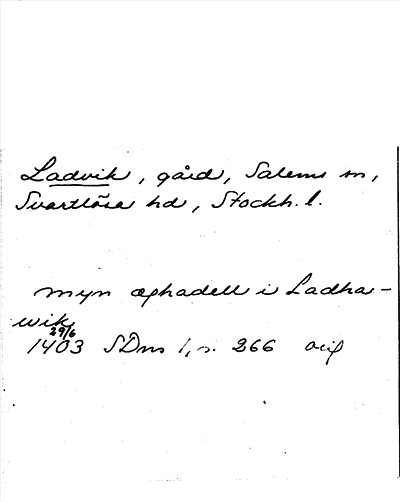 Ladvik, gård, Salems sn,
Svartlösa hd, Stockh. l.
myn æghadell i Ladha-
wik
29/6
1403 SDns 1, s. 266 orig